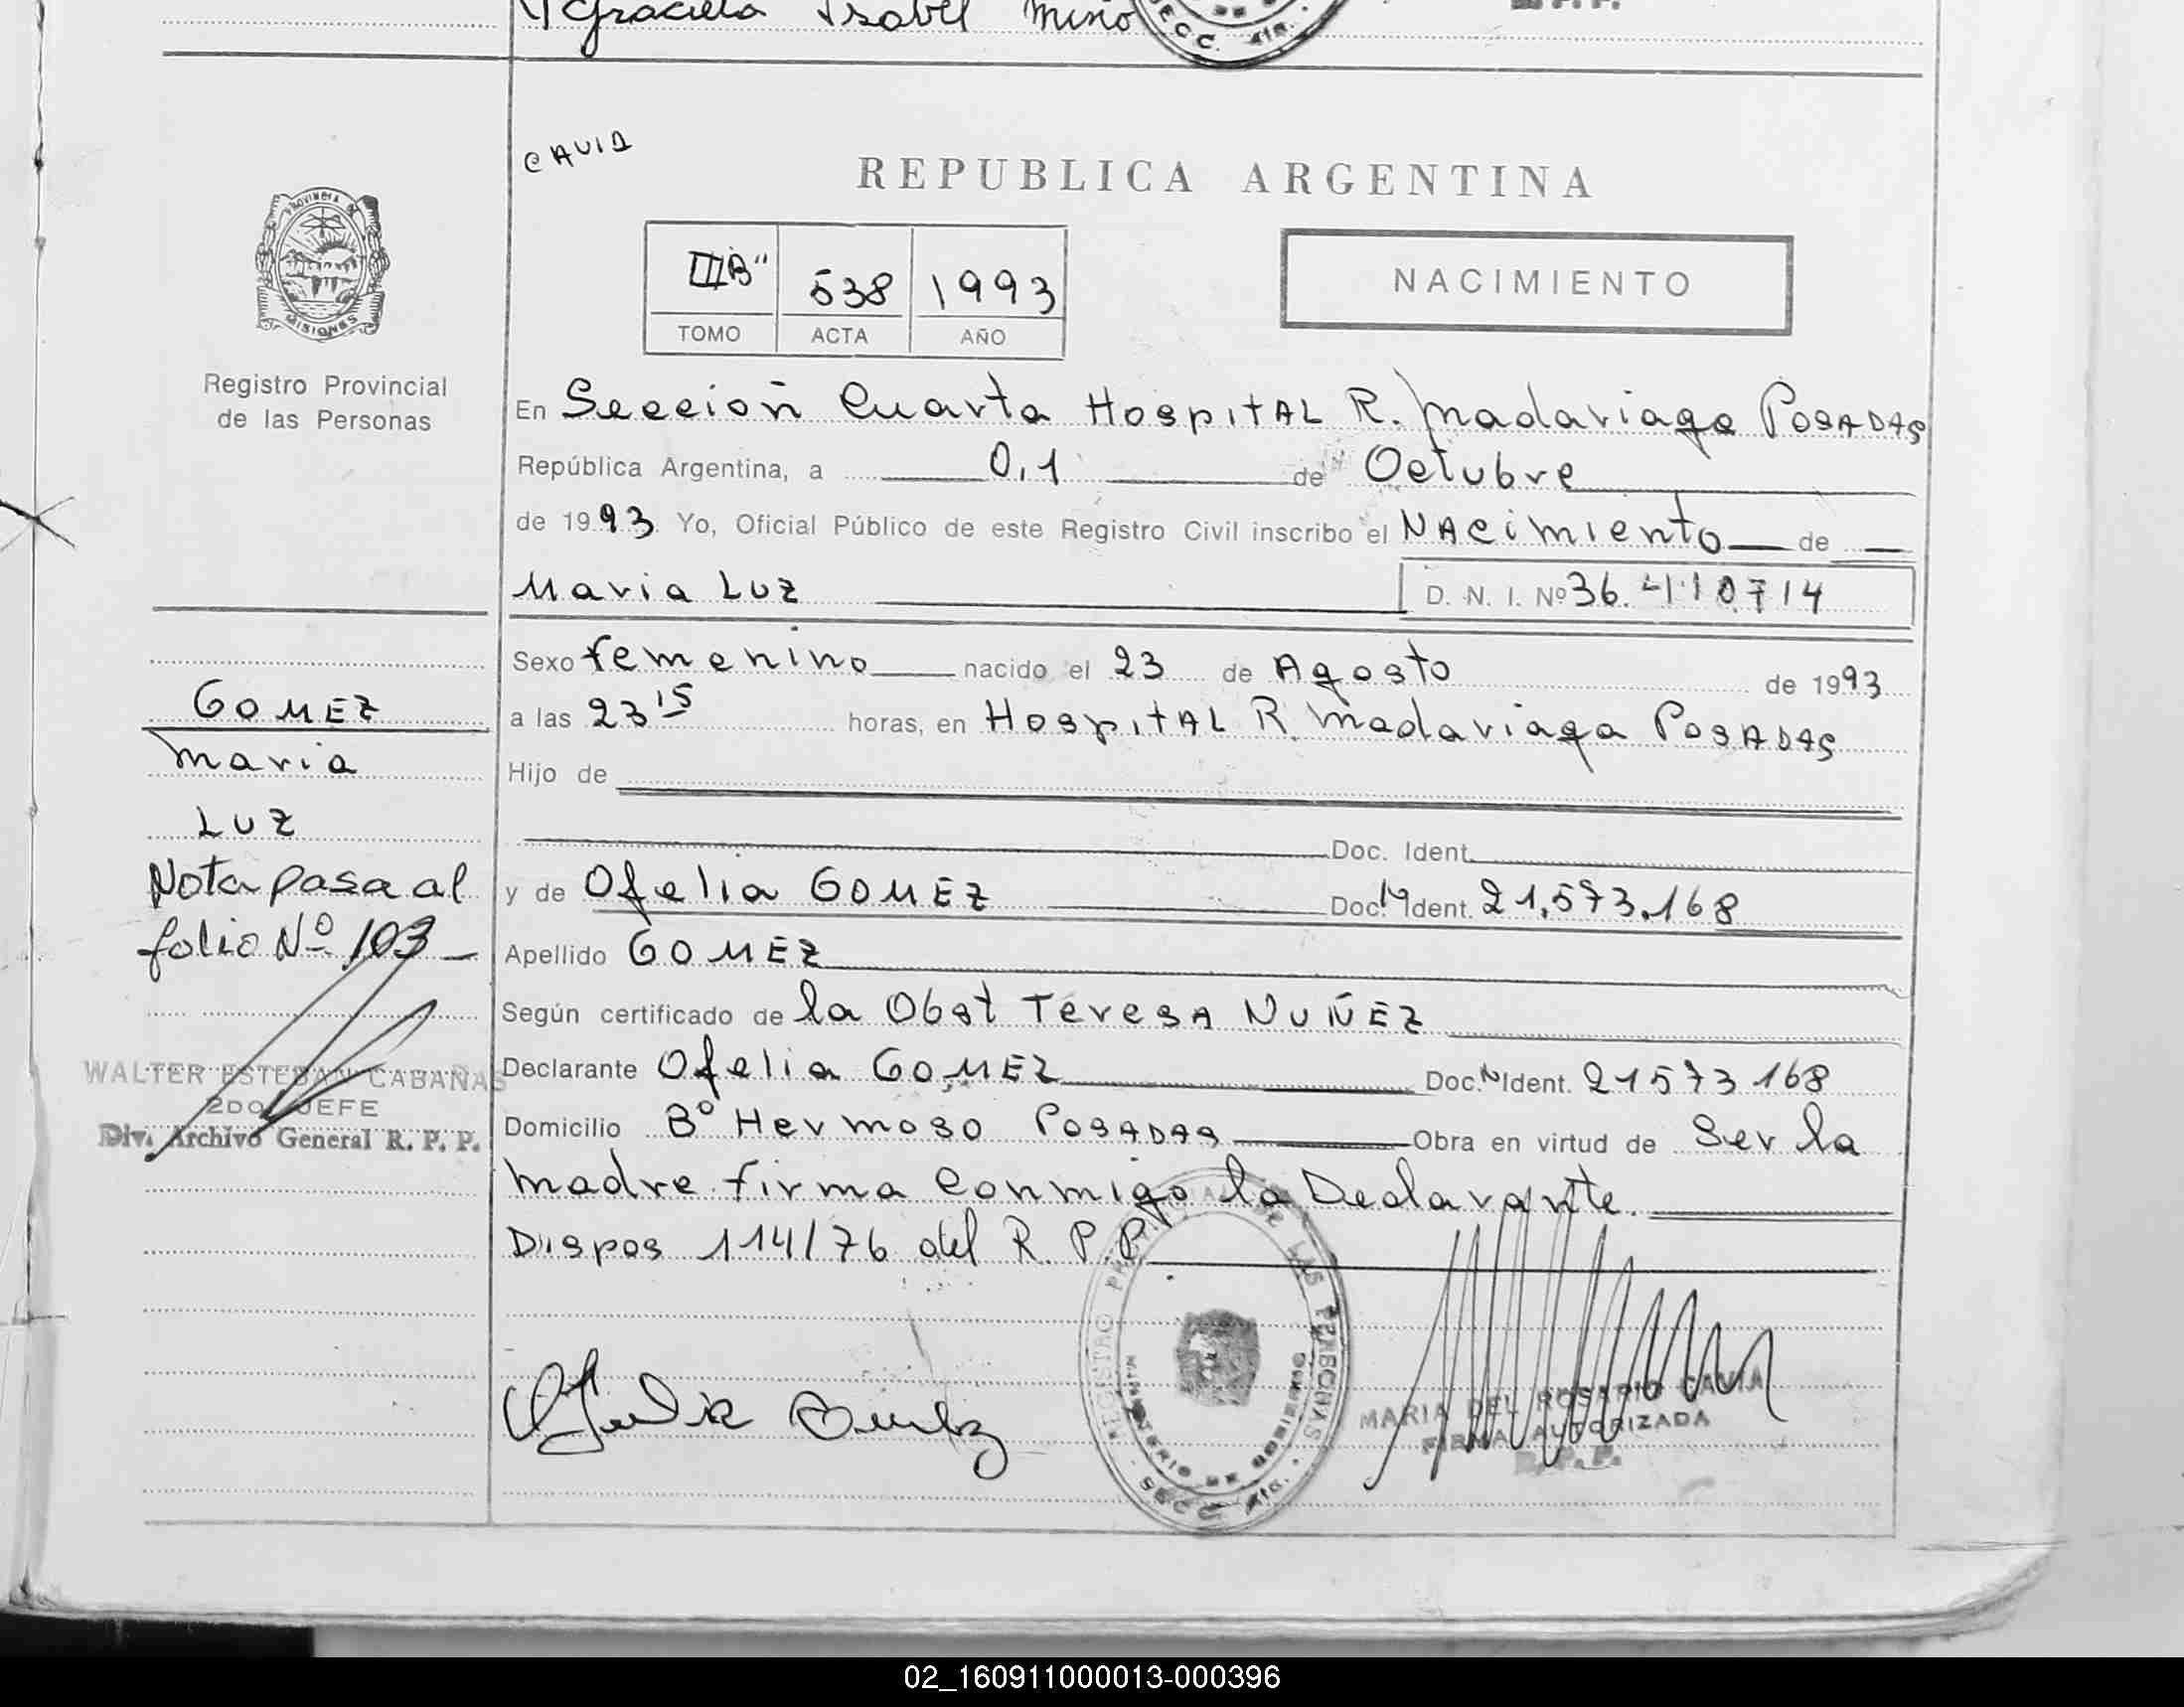 Graciela Isabel Miño
SECC. 4ta.
CAVIA
REPUBLICA ARGENTINA
PROVINCIA DE
MISIONES
Registro Provincial
de las Personas
III"B" 538 1993
TOMO ACTA AÑO
NACIMIENTO
En Sección Cuarta Hospital R. Madariaga Posadas
República Argentina, a 01 de Octubre
de 1993 Yo, Oficial Público de este Registro Civil inscribo el Nacimiento de
Maria Luz D. N. I. Nº 36.410714
Sexo femenino nacido el 23 de Agosto de 1993
a las 23 15 horas, en Hospital R. Madariaga Posadas
Hijo de
Doc. Ident.
y de Ofelia GOMEZ Doc. N Ident. 21.573.168
Apellido GOMEZ
Según certificado de la Obst Teresa NUÑEZ
Declarante Ofelia GOMEZ Doc. N Ident. 21573168
Domicilio Bº Hermoso Posadas Obra en virtud de Ser la
madre firma conmigo la Declarante.
Dispos 114/76 del R. P. P.
GOMEZ
Maria
LUZ
Nota pasa al
folio Nº 103
WALTER ESTEBAN CABAÑAS
2DO JEFE
Div. Archivo General R. P. P.
REGISTRO PROVINCIAL DE LAS PERSONAS
MINISTERIO DE GOBIERNO
SECC. 4ta.
MARIA DEL ROSARIO CAVIA
FIRMA AUTORIZADA
R. P. P.
02_160911000013-000396